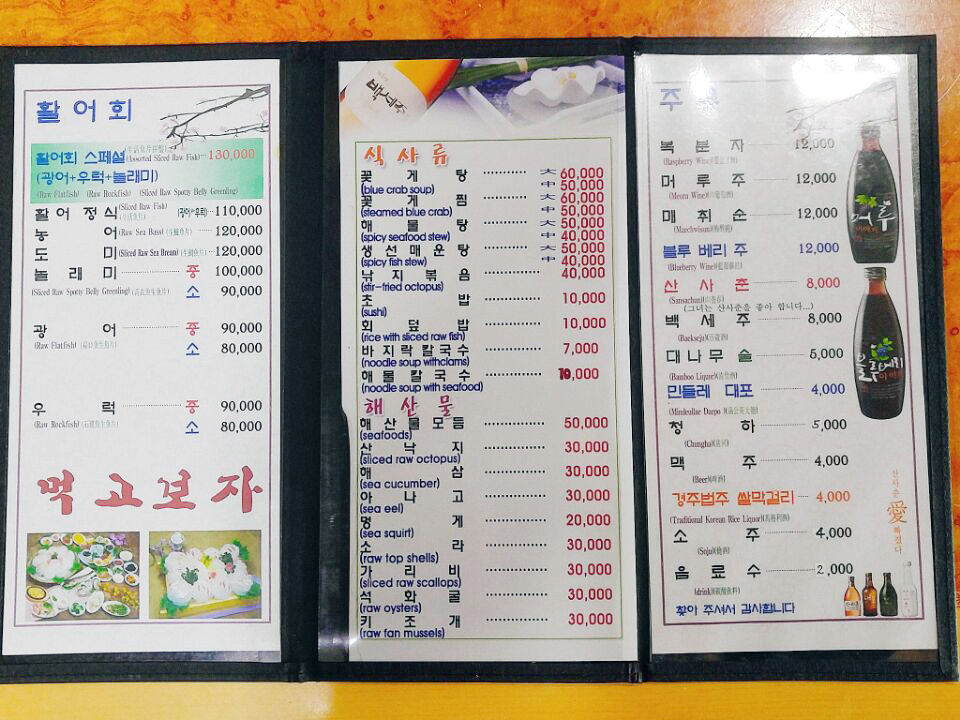 활어회
활어회 스페셜 (Assorted Sliced Raw Fish) 130,000
(광어+우럭+놀래미)
(Raw Flatfish) (Raw Rockfish) (Sliced Raw Spotty Belly Greenling)
활어 정식 (Sliced Raw Fish) (광어+우럭) 110,000
농어 (Raw Sea Bass) 120,000
도미 (Sliced Raw Sea Bream) 120,000
놀래미 중 100,000
(Sliced Raw Spotty Belly Greenling) 소 90,000
광어 중 90,000
(Raw Flatfish) 소 80,000
우럭 중 90,000
(Raw Rockfish) 소 80,000
먹고보자
백세주
식사류
꽃게탕 大 60,000
(blue crab soup) 中 50,000
꽃게찜 大 60,000
(steamed blue crab) 中 50,000
해물탕 大 50,000
(spicy seafood stew) 中 40,000
생선매운탕 大 50,000
(spicy fish stew) 中 40,000
낚지볶음 40,000
(stir-fried octopus)
초밥 10,000
(sushi)
회덮밥 10,000
(rice with sliced raw fish)
바지락칼국수 7,000
(noodle soup withclams)
해물칼국수 10,000
(noodle soup with seafood)
해산물
해산물모듬 50,000
(seafoods)
산낙지 30,000
(sliced raw octopus)
해삼 30,000
(sea cucumber)
아나고 30,000
(sea eel)
멍게 20,000
(sea squirt)
소라 30,000
(raw top shells)
가리비 30,000
(sliced raw scallops)
석화굴 30,000
(raw oysters)
키조개 30,000
(raw fan mussels)
주류
복분자 12,000
(Raspberry Wine)
머루주 12,000
(Meoru Wine)
매취순 12,000
(Maechwisun)
블루베리주 12,000
(Blueberry Wine)
산사춘 8,000
(Sansachun)
(그녀는 산사춘을 좋아 합니다...)
백세주 8,000
(Baekseju)
대나무술 5,000
(Bamboo Liquor)
민들레 대포 4,000
(Mindeullae Daepo)
청하 5,000
(Chungha)
맥주 4,000
(Beer)
경주법주 쌀막걸리 4,000
(Traditional Korean Rice Liquor)
소주 4,000
(Soju)
음료수 2,000
(drink)
찾아 주셔서 감사합니다
머루
블루베리
산사춘 愛 빠졌다